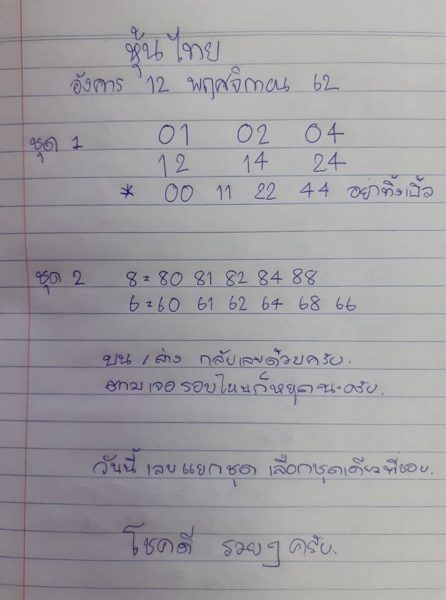 หุ้นไทย
อังคาร 12 พฤศจิกายน 62
ชุด 1 01 02 04
12 14 24
* 00 11 22 44 อย่าทิ้งเบิ้ล
ชุด 2 8 = 80 81 82 84 88
6 = 60 61 62 64 68 66
บน / ล่าง กลับเลขด้วยครับ.
ตามเจอรอบไหนก็หยุดนะครับ.
วันนี้ เลขแยกชุด เลือกชุดเดียวที่ชอบ.
โชคดี รวยๆ ครับ.